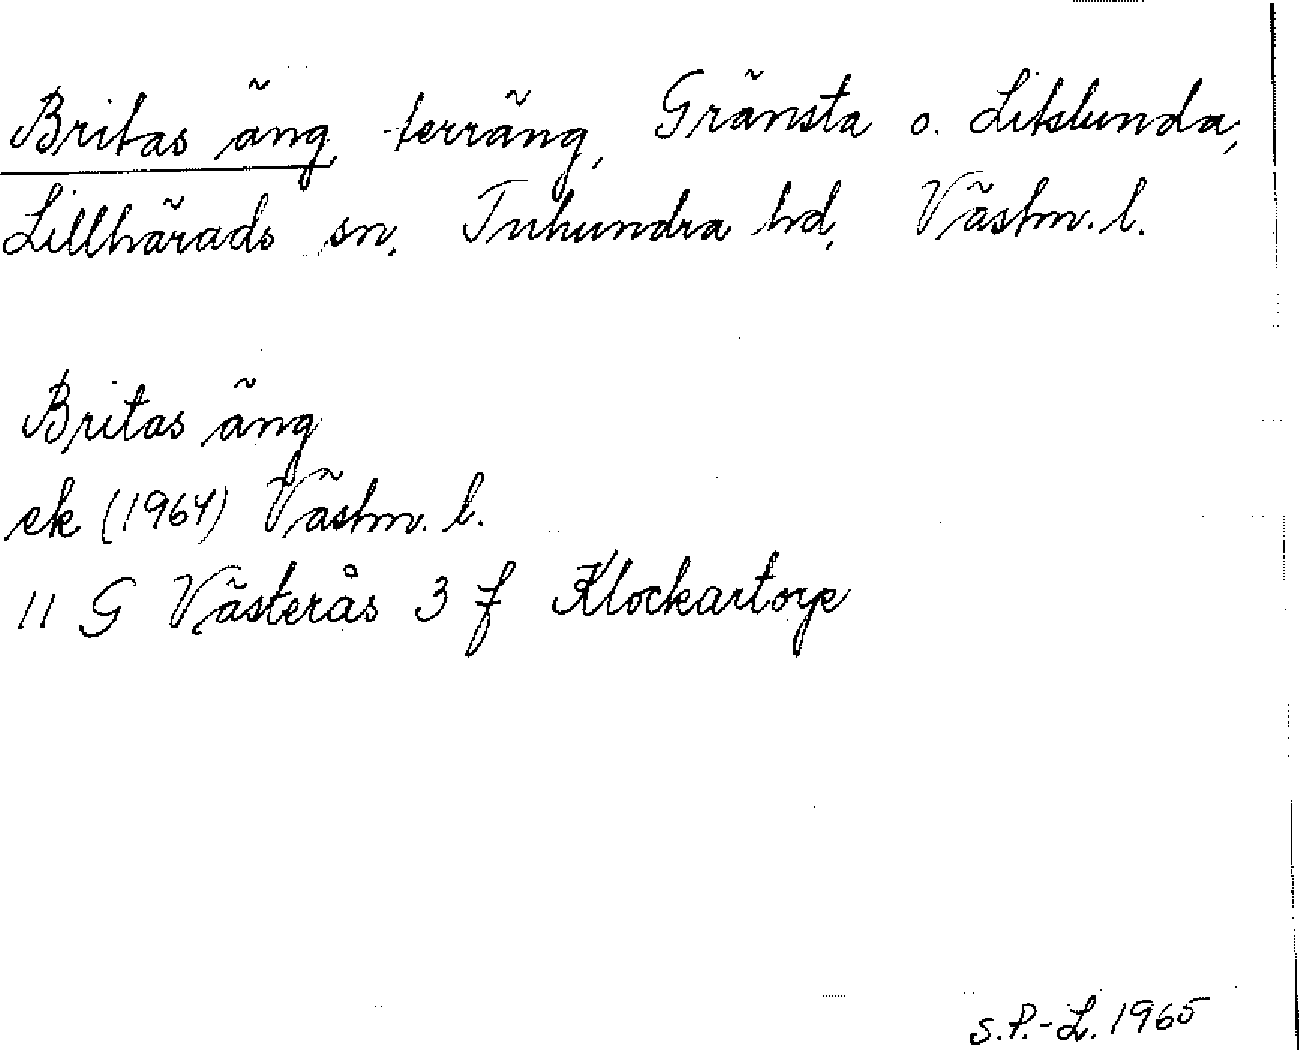 Britas äng, terräng, Gränsta o. Litslunda,
Lillhärads sn, Tuhundra hd, Västm. l.
Britas äng
ek (1964) Västm. l.
11 G Västerås 3 f Klockartorp
S.P.-L. 1965